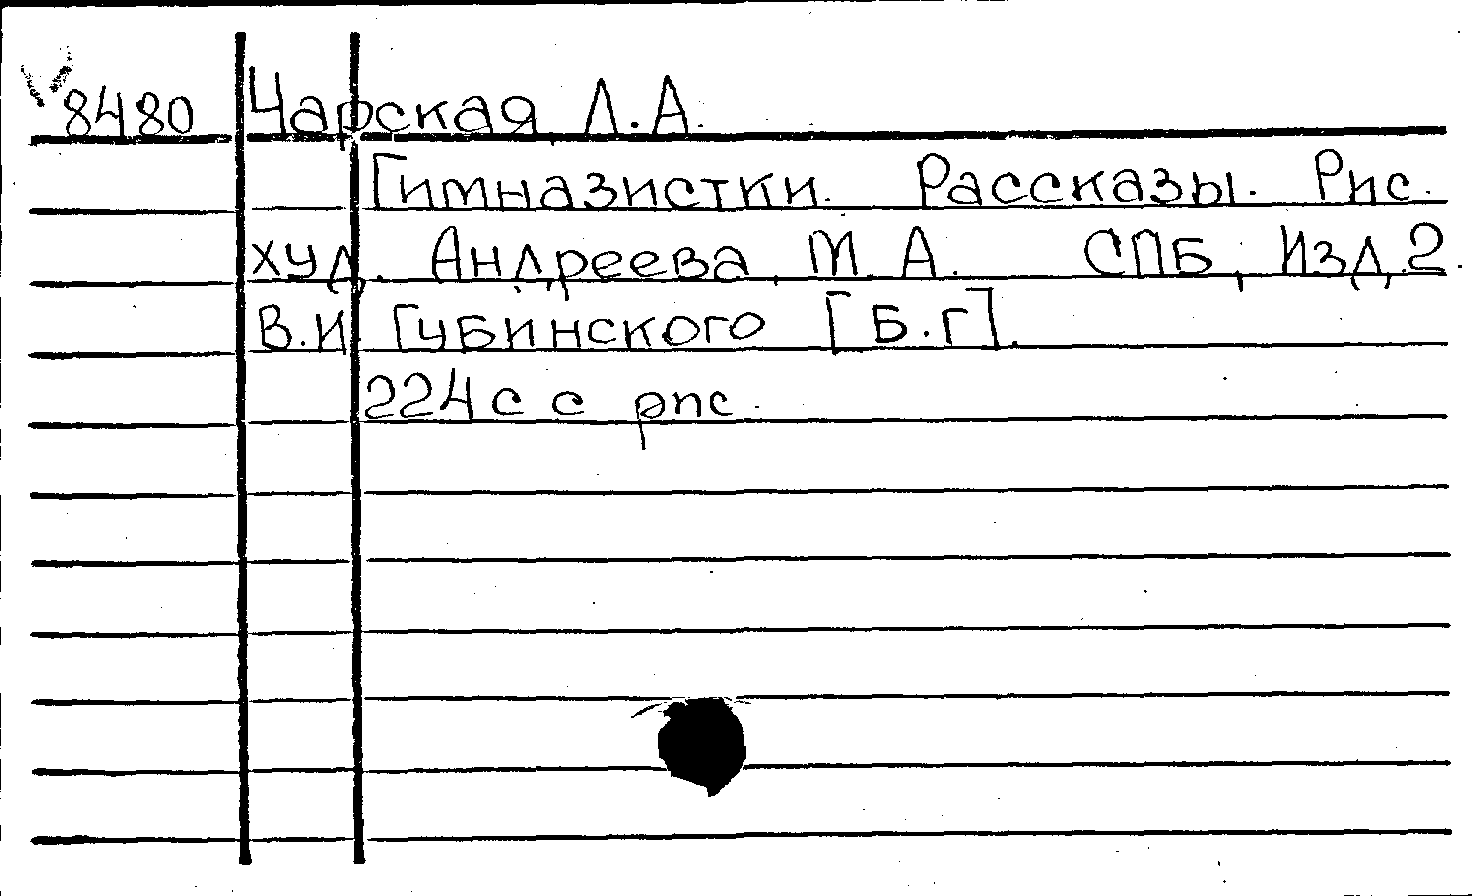 8480 Чарская, Л.А.
Гимназистки. Рассказы. Рис.
худ. Андреева, М.А. СПБ, Изд. 2.
В.И. Губинского [Б.г].
224с с рис.